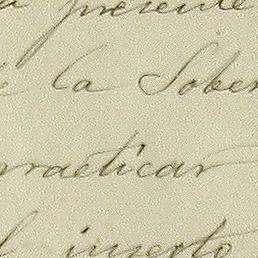 la presente
de la Sober
practicar
el inserto